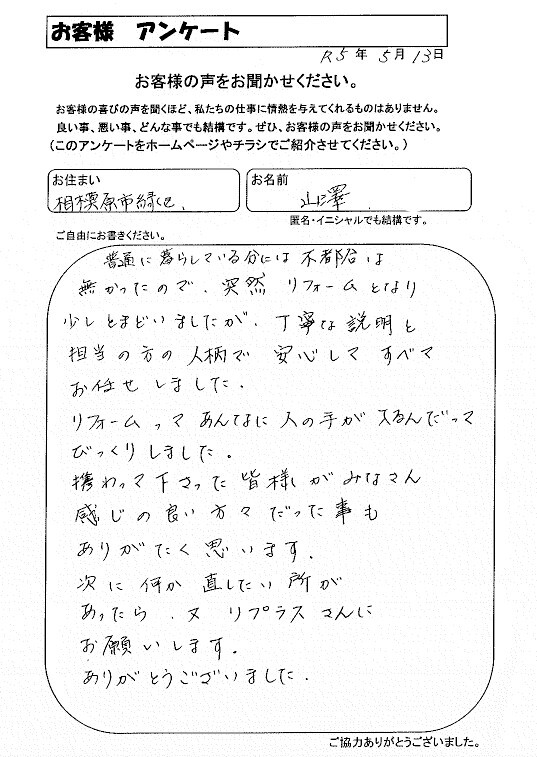 お客様 アンケート
R5年 5月13日
お客様の声をお聞かせください。
お客様の喜びの声を聞くほど、私たちの仕事に情熱を与えてくれるものはありません。
良い事、悪い事、どんな事でも結構です。ぜひ、お客様の声をお聞かせください。
（このアンケートをホームページやチラシでご紹介させてください。）
お住まい
相模原市緑区.
お名前
山澤.
匿名・イニシャルでも結構です。
ご自由にお書きください。
普通に暮らしている分には不都合は
無かったので、突然 リフォームとなり
少しとまどいましたが、丁寧な説明と
担当の方の人柄で 安心して すべて
お任せしました.
リフォームって あんなに 人の手が 入るんだって
びっくりしました。
携わって下さった皆様がみなさん
感じの良い方々だった事も
ありがたく思います.
次に何か直したい所が
あったら、又 リプラスさんに
お願いします。
ありがとうございました.
ご協力ありがとうございました。